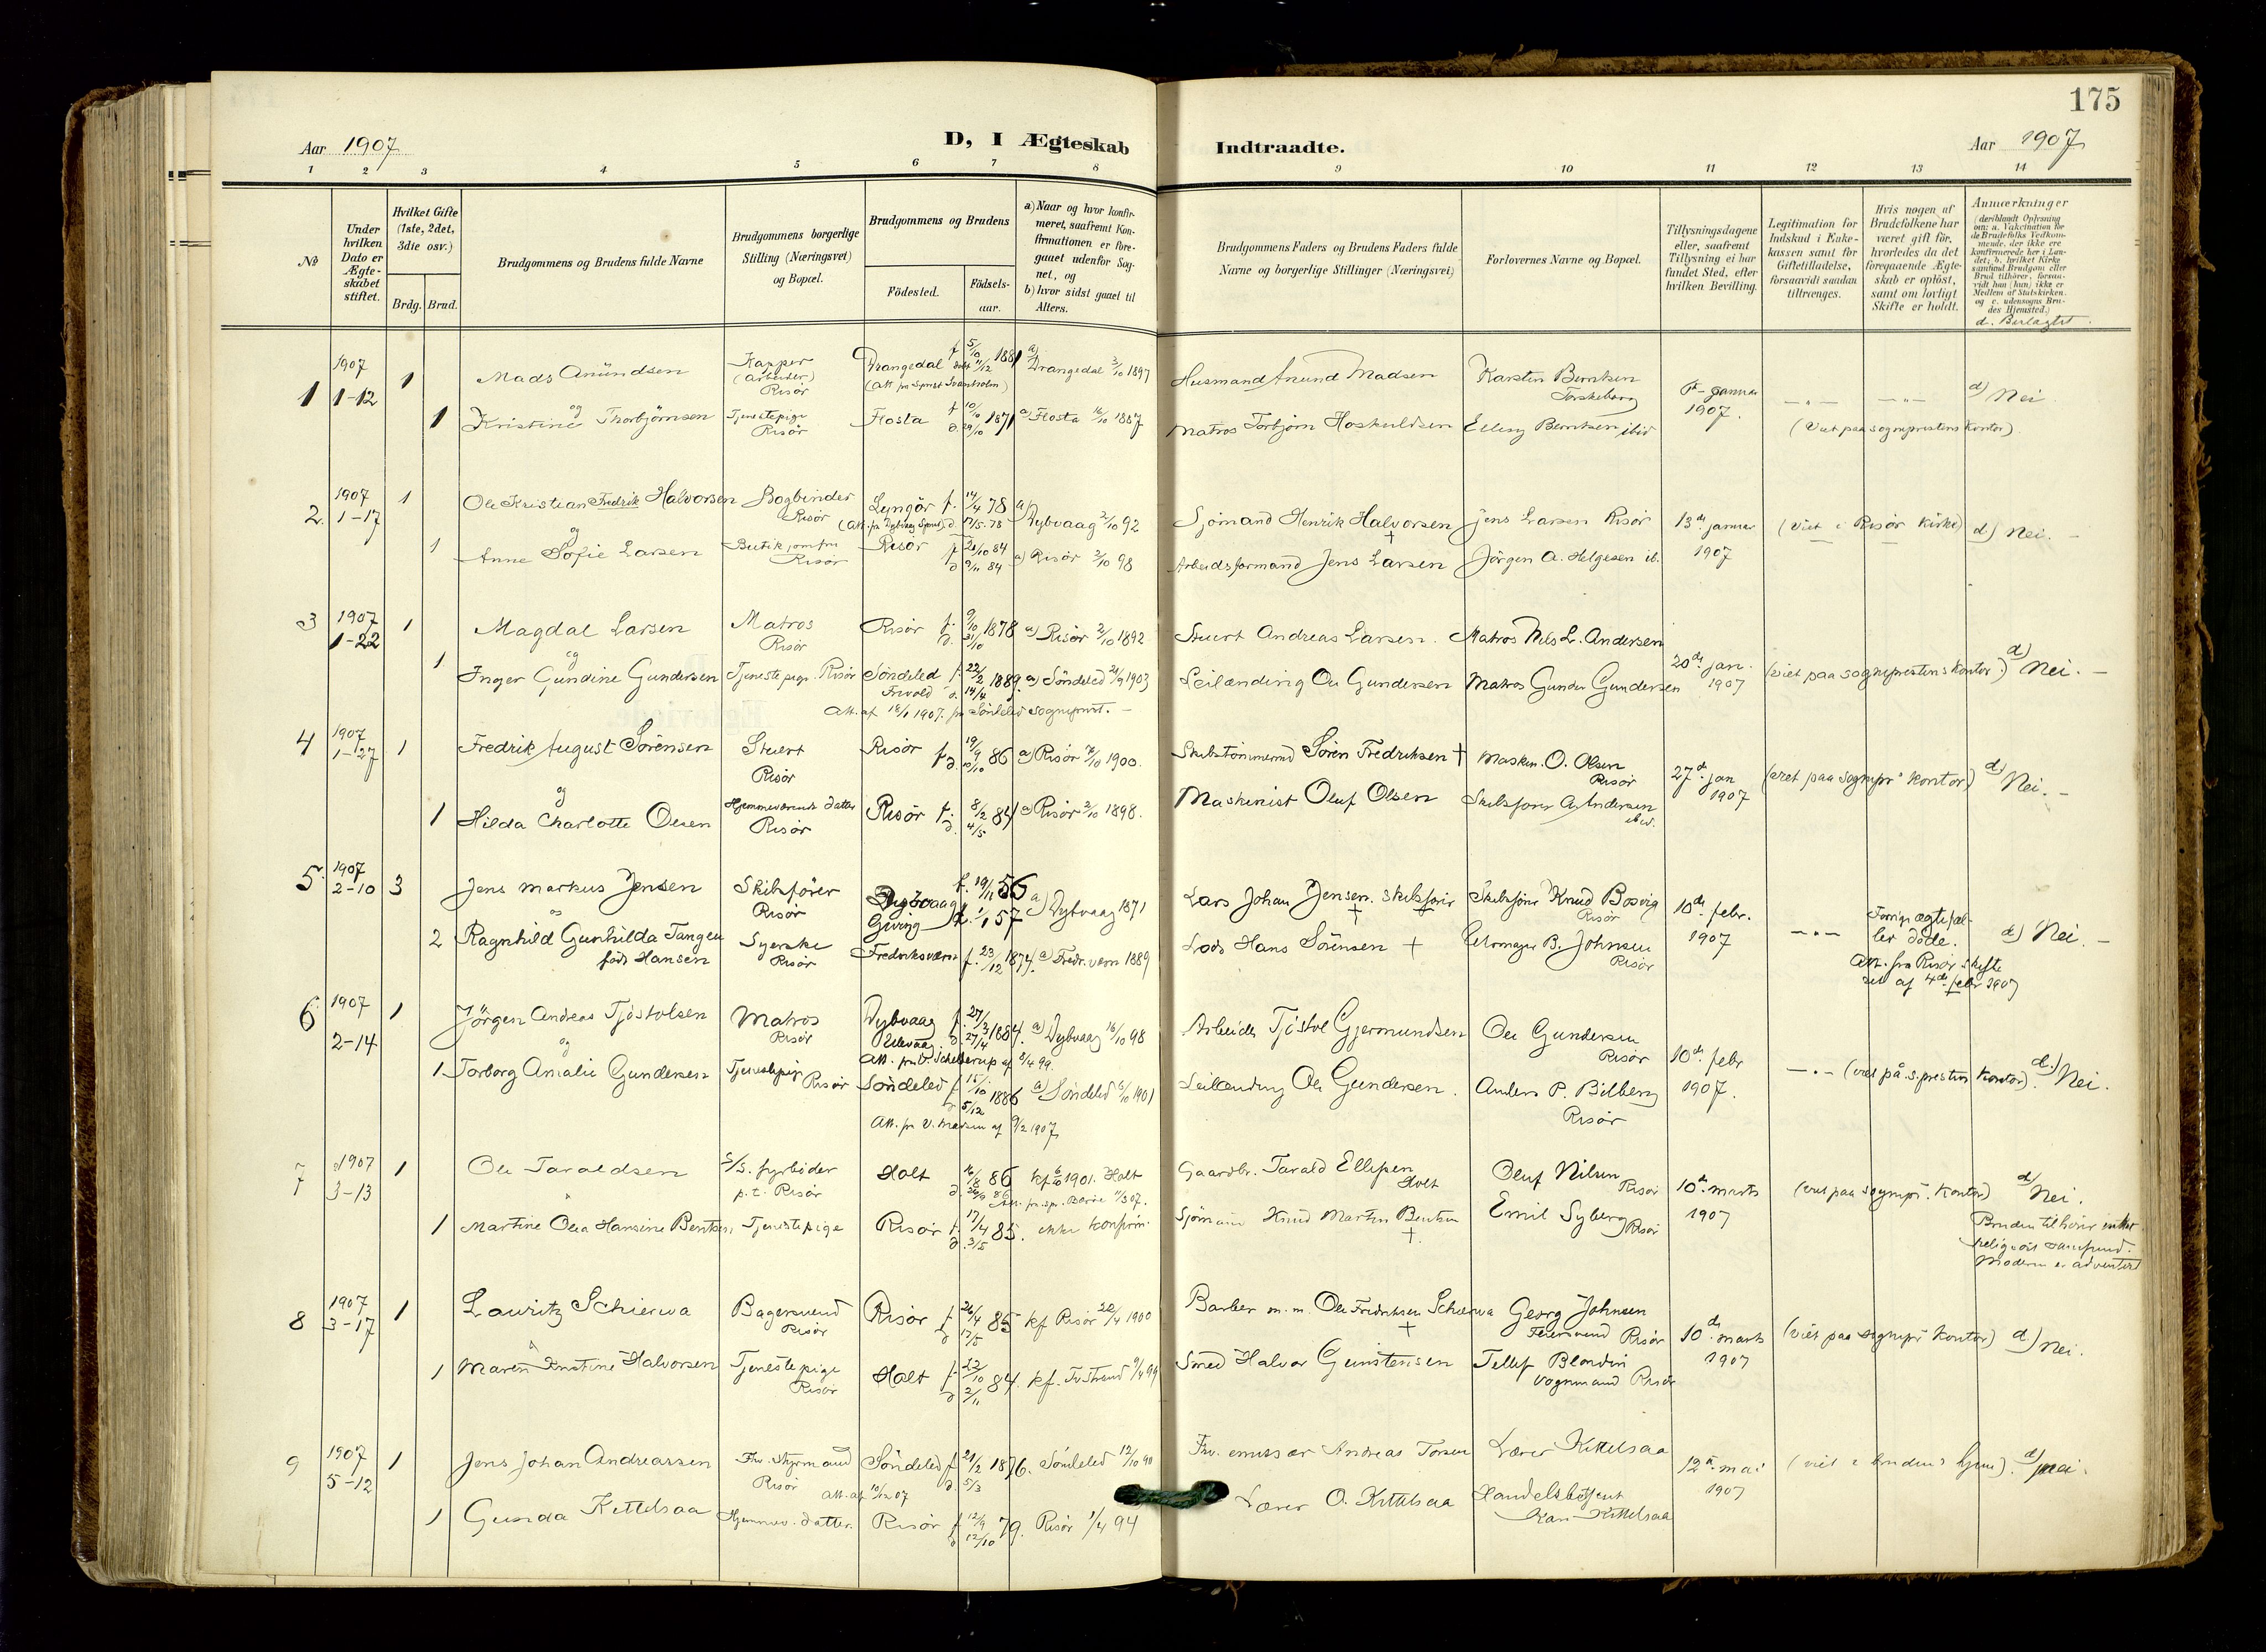 175
Aar 1907
D, I Ægteskab Indtraadte.
Aar 1907
1 2 3 4 5 6 7 8 9 10 11 12 13 14
№
Under hvilken Dato er Ægteskabet stiftet.
Hvilket Gifte (1ste, 2det, 3die osv.)
Brdg. Brud.
Brudgommens og Brudens fulde Navne
Brudgommens borgerlige Stilling (Næringsvei) og Bopæl.
Brudgommens og Brudens
Fødested.
Fødsels-aar.
a) Naar og hvor konfirmeret, saafremt Konfirmationen er foregaaet udenfor Sognet, og
b) hvor sidst gaaet til Alters.
Brudgommens Faders og Brudens Faders fulde Navne og borgerlige Stillinger (Næringsvei)
Forlovernes Navne og Bopæl.
Tillysningsdagene eller, saafremt Tillysning ei har fundet Sted, efter hvilken Bevilling.
Legitimation for Indskud i Enkekassen samt for Giftetilladelse, forsaavidt saadan tiltrænges.
Hvis nogen af Brudefolkene har været gift før, hvorledes da det foregaaende Ægteskab er opløst, samt om lovligt Skifte er holdt.
Anmærkninger
(deriblandt Oplysning om: a. Vakcination for de Brudefolks Vedkommende, der ikke ere konfirmerede her i Landet; b. hvilket Kirkesamfund Brudgom eller Brud tilhører, forsaavidt han (hun) ikke er Medlem af Statskirken. og c. udensogns Brudes Hjemsted.)
d. Beslægtet.
1 1907 1-12 1 Mads Anundsen Kapper (arbeider) Risør Drangedal f 5/10 1881 døbt 11/12 a) Drangedal 3/10 1897 Husmand Anund Madsen Karsten Berntsen Torskeberg januar 1907. d) Nei.
og
1 Kristine Thorbjørnsen Tjenestepige Risør Flosta f 10/10 1871 d. 29/10 a) Flosta 16/10 1887 Matros Torbjørn Hoskuldsen Elling Berntsen ibid (Viet paa sogneprestens kontor)
2. 1907 1-17 1 Ole Kristian Fredrik Halvorsen Bogbinder Risør Lyngør f. 14/4 78 d. 17/5 78 a) Dybvaag 2/10 92 Sjømand Henrik Halvorsen † Jens Larsen Risør 13de januar 1907 (Viet i Risør kirke) d) Nei. -
og
1 Anne Sofie Larsen Butikjomfru Risør Risør f 20/10 84 d 9/11 84 a) Risør 2/10 98 Arbeidsformand Jens Larsen Jørgen A. Helgesen ib.
3 1907 1-22 1 Magdal Larsen Matros Risør Risør f. 9/10 1878 d. 31/10 a) Risør 2/10 1892 Stuert Andreas Larsen. Matros Nils L. Andersen 20de jan. 1907 (viet paa sogneprestens kontor.) d) Nei. -
og
1 Inger Gundine Gundersen Tjenestepige Risør Søndeled f. 22/2 1889. d. 14/4 a) Søndeled 1903 Leilænding Ole Gundersen Matros Gunder Gundersen
Att. af 18/1 1907. fra Søndeled sogneprest. -
4 1907 1-27 1 Fredrik August Sørensen Stuert Risør Risør f 19/9 86 d. 10/10 a) Risør 7/10 1900. Skibstømmermd Søren Fredriksen † Maskin. O. Olsen Risør 27de jan 1907 (viet paa sognepr. kontor) d) Nei. -
og
1 Hilda Charlotte Olsen Hjemmeværende datter Risør Risør f. 8/2 84 d. 4/5 a) Risør 2/10 1898. Maskinist Oluf Olsen Skibsfører A. Andersen ibid.
5. 1907 2-10 3 Jens Markus Jensen Skibsfører Risør Dybvaag Giving f. 19/11 56 d. 1/1 57 a) Dybvaag 1871 Lars Johan Jensen. skibsfører † Skibsfører Knud Bosvig Risør 10de febr. 1907 Forrige ægtefæller døde. d) Nei. -
og
2 Ragnhild Gunhilda Tangen født Hansen Syerske Risør Fredriksværn f. 23/12 1874. a) Fredr.værn 1889 Lods Hans Sørensen † Urmager B. Johnsen Risør Att. fra Risør skifteret af 4de febr 1907
6. 1907 2-14 1 Jørgen Andreas Tjøstolsen Matros Risør Dybvaag f. 27/3 1884. d. 27/4 a) Dybvaag 16/10 98 Arbeider Tjøstol Gjermundsen Ole Gundersen Risør 10de febr 1907. (viet på s.prestens kontor). d.) Nei.
og
1 Torborg Amalie Gundersen Tjenestepige Risør Søndeled f 15/10 1886 d 5/12 a) Søndeled 6/10 1901 Leilænding Ole Gundersen. Anders P. Bilberg Risør
Att. fra V. Madsen af 9/2 1907
7 1907 3-13 1 Ole Taraldsen S/S. fyrbøder p.t. Risør Holt 16/8 86 kf 1901. Holt Gaardbr. Tarald Ellefsen Holt Oluf Nilsen Risør 10de marts 1907 (viet paa sognepr. kontor) d) Nei.
1 Martine Olea Hansine Bentsen Tjenestepige Risør f. 17/4 85. d. 3/5 ikke konfirm. Sjømand Knud Martin Bentsen † Emil Syberg Risør Bruden tilhører intet religiøst samfund. Moderen er adventist
8 1907 3-17 1 Lauritz Schierwa Bagersvend Risør Risør f 26/4 85 d 17/5 kf Risør 22/4 1900 Barber m. m. Ole Fredriksen Schierwa † Georg Johnsen Feiersvend Risør 10de marts 1907 (viet paa sognepr kontor) d) Nei.
1 Maren Kristine Halvorsen Tjenestepige Risør Holt f. 22/10 84. d 2/11 kf. Tvestrand 9/4 99 Smed Halvor Gunstensen Tellef Blondin vognmand Risør
9 1907 5-12 1 Jens Johan Andreassen Fhv. styrmand Risør Søndeled f 21/2 1876. d. 5/3 Søndeled 12/10 90 Fhv. emissær Andreas Torsen Lærer Kittelsaa 12te mai 1907 (viet i brudens hjem). d) Nei.
Att. af 10/12 07
1 Gunda Kittelsaa Hjemmev. datter. Risør f 12/9 79. d 12/10 Risør 1/4 94 Lærer O. Kittelsaa Handelsbetjent Karl Kittelsaa